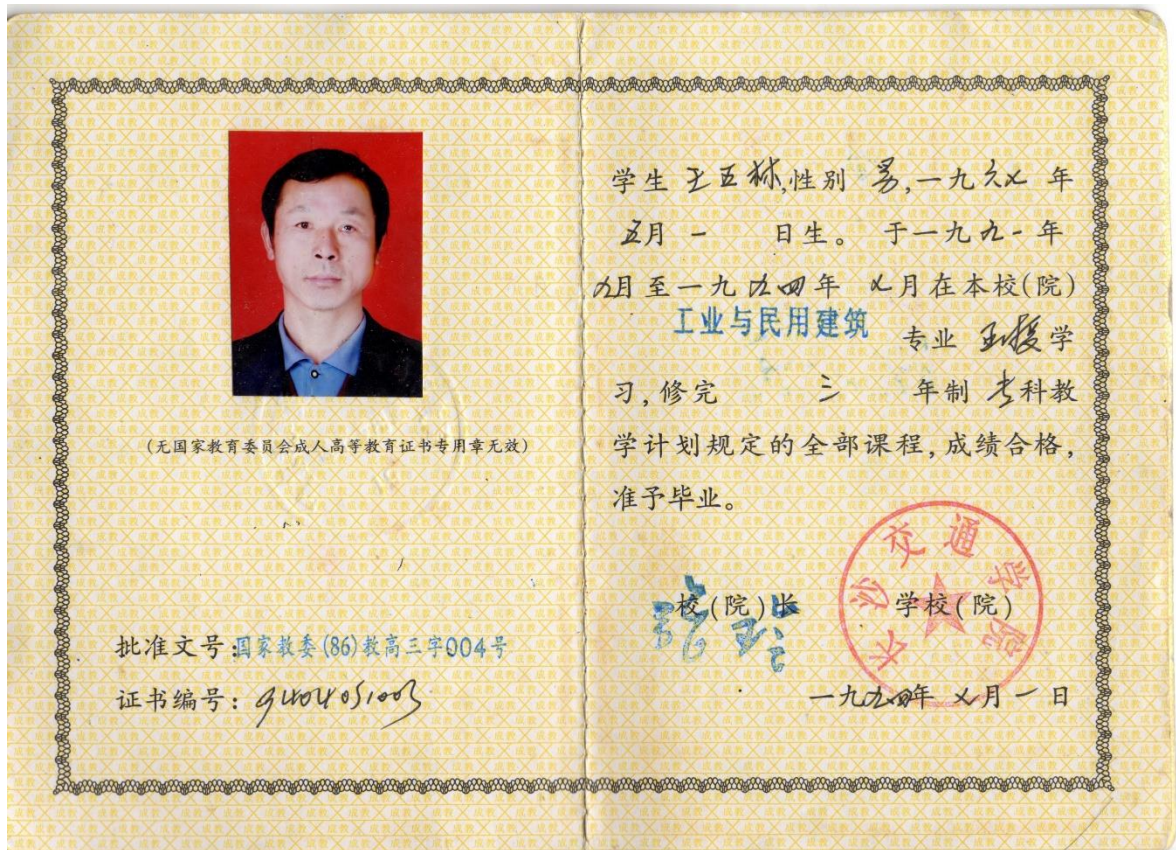 (无国家教育委员会成人高等教育证书专用章无效)
批准文号:国家教委(86)教高三字004号
证书编号:9404051003
学生 王五林,性别 男,一九六七 年
五月 一 日生。于一九九一年
九月至一九九四年 七月在本校(院)
工业与民用建筑 专业 函授学
习,修完 三 年制 专科教
学计划规定的全部课程,成绩合格,
准予毕业。
校(院)长 学校(院)
长沙交通学院
一九九四年 七月一日